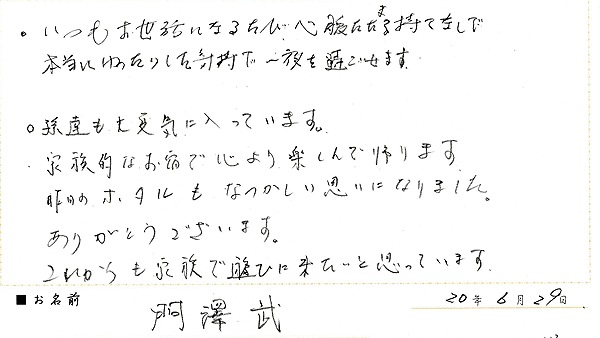 。いつもお世話になるたび、心暖たまる持てなしで
本当にゆったりした気持で一夜を過ごせます
。孫達も大変気に入っています。
家族的なお宿で心より楽しんで帰ります
昨日のホタルもなつかしい思いになりました。
ありがとうございます。
これからも家族で遊びに来たいと思っています.
■お名前 澤 武 20年6月29日